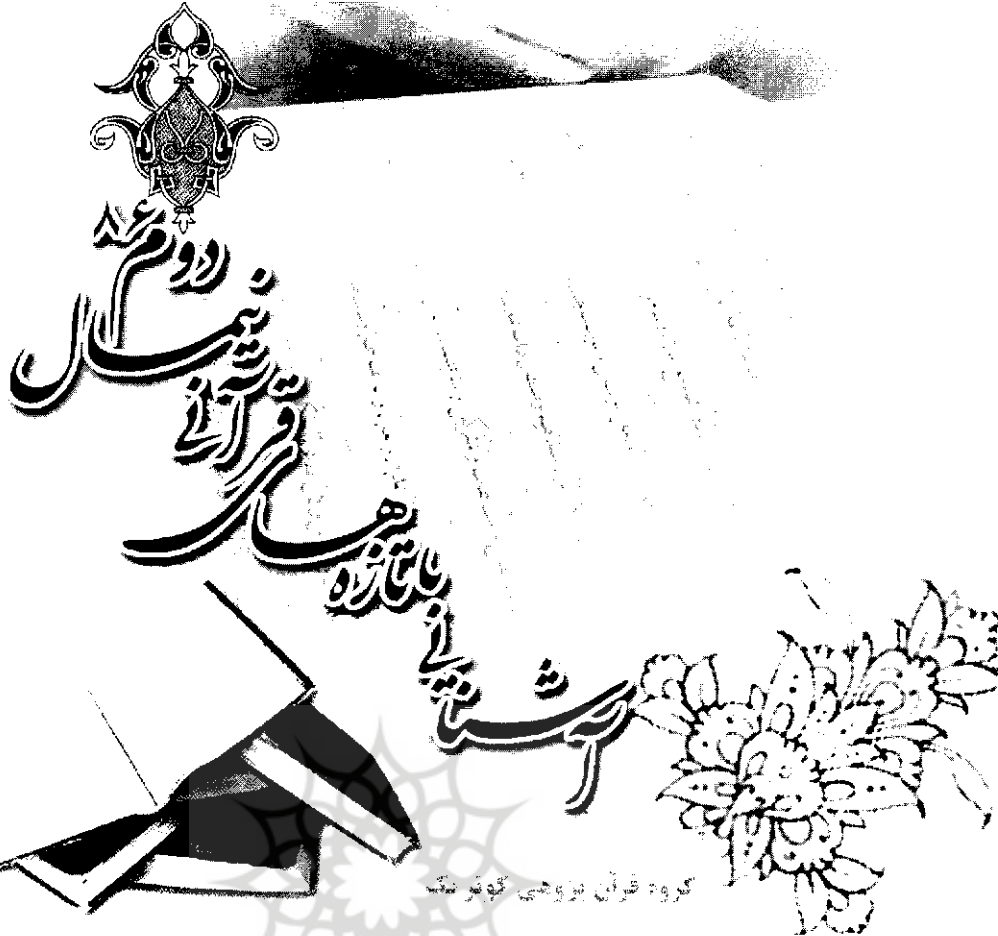 آشنائی با تازه های قرآنی نیمسال دوم ۸۶
گروه قرآن پژوهی کوثر نک